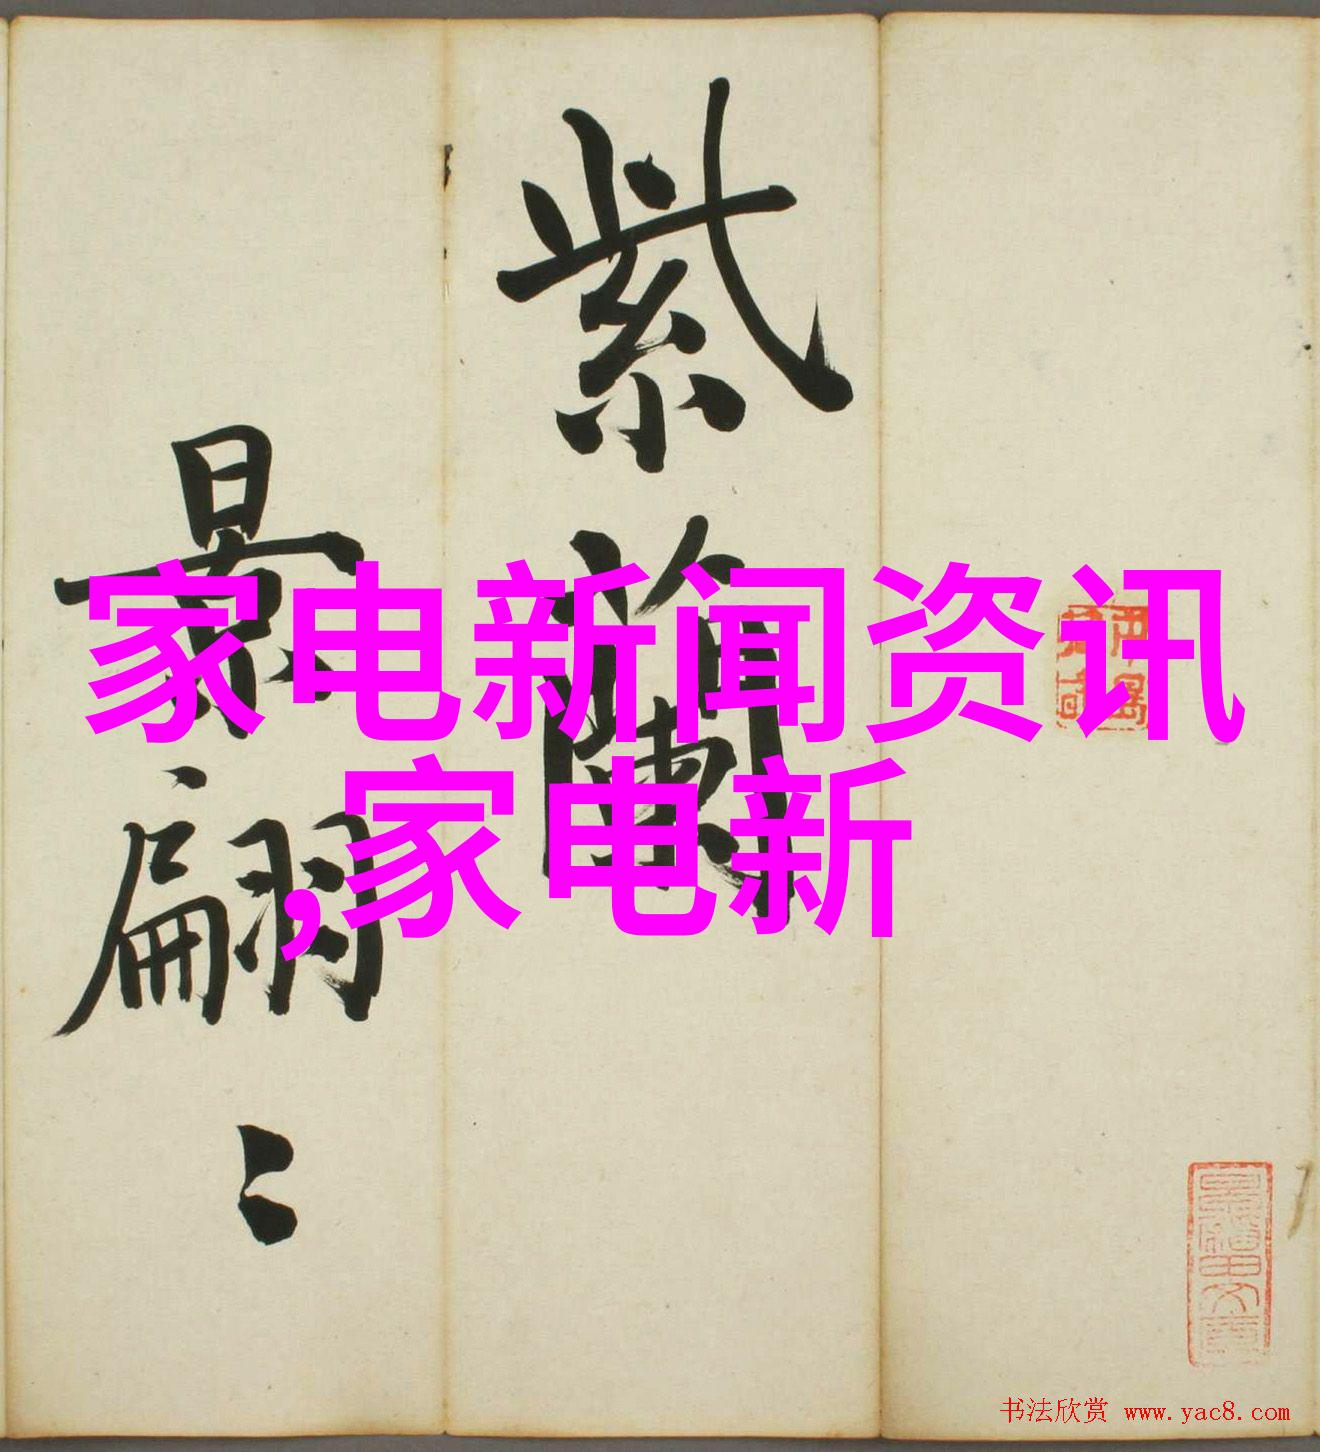 紫蘭
景翩〻
家电新闻资讯
,家电新
书法欣赏 www.yac8.com